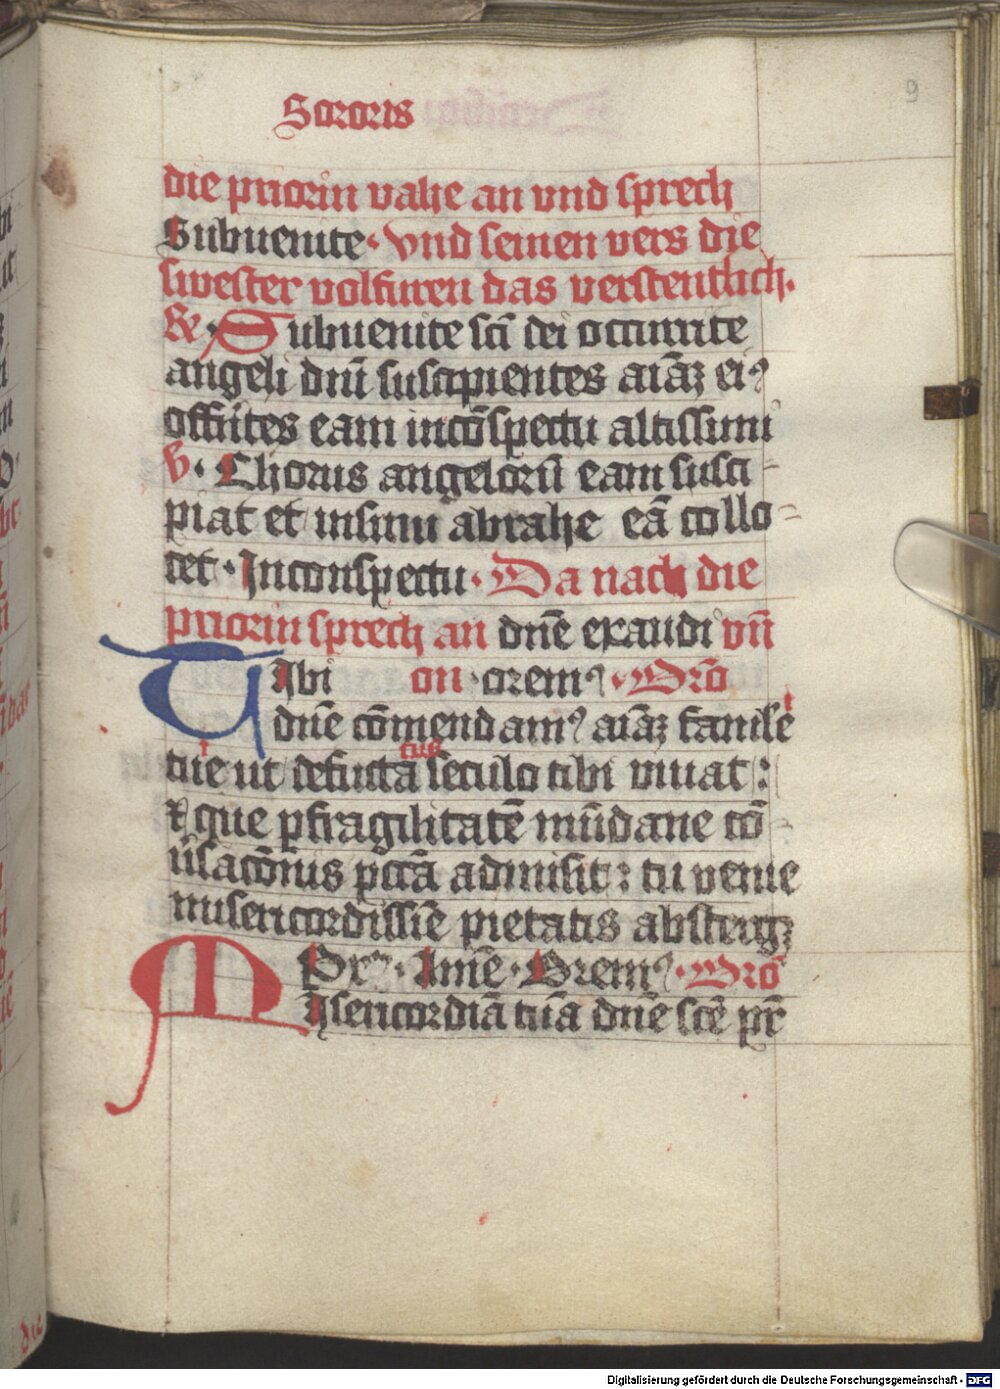 Sororis
9
die priorin vahe an vnd sprech
Subuenite · vnd seinen vers die
swester volfuren das verstentlich·
℟· Subuenite sc̄i dei occurrite
angeli dn̄i suscipientes aīaꝫ eiꝰ
offerētes eam incōspectu altissimi
℣· Chorus angelorū eam susci-
piat et insinu abrahe eā collo-
cet · Inconspectu · Da nach die
priorin sprech an dnē exaudi vn̄
Tibi on · oremꝰ · Orō
dnē cōmendamꝰ aīaꝫ famule
tue ut defūcta seculo tibi viuat :
i
tus
i
⁊ que ꝑfragilitatē mūdane cō-
ūsacōnis pctā admisit : tu venie
misericordissīe pietatis abstergꝫ
Pr · Amē · Oremꝰ · Orō
Misericordiā tuā dnē scē pr̄
die
Digitalisierung gefördert durch die Deutsche Forschungsgemeinschaft - DFG